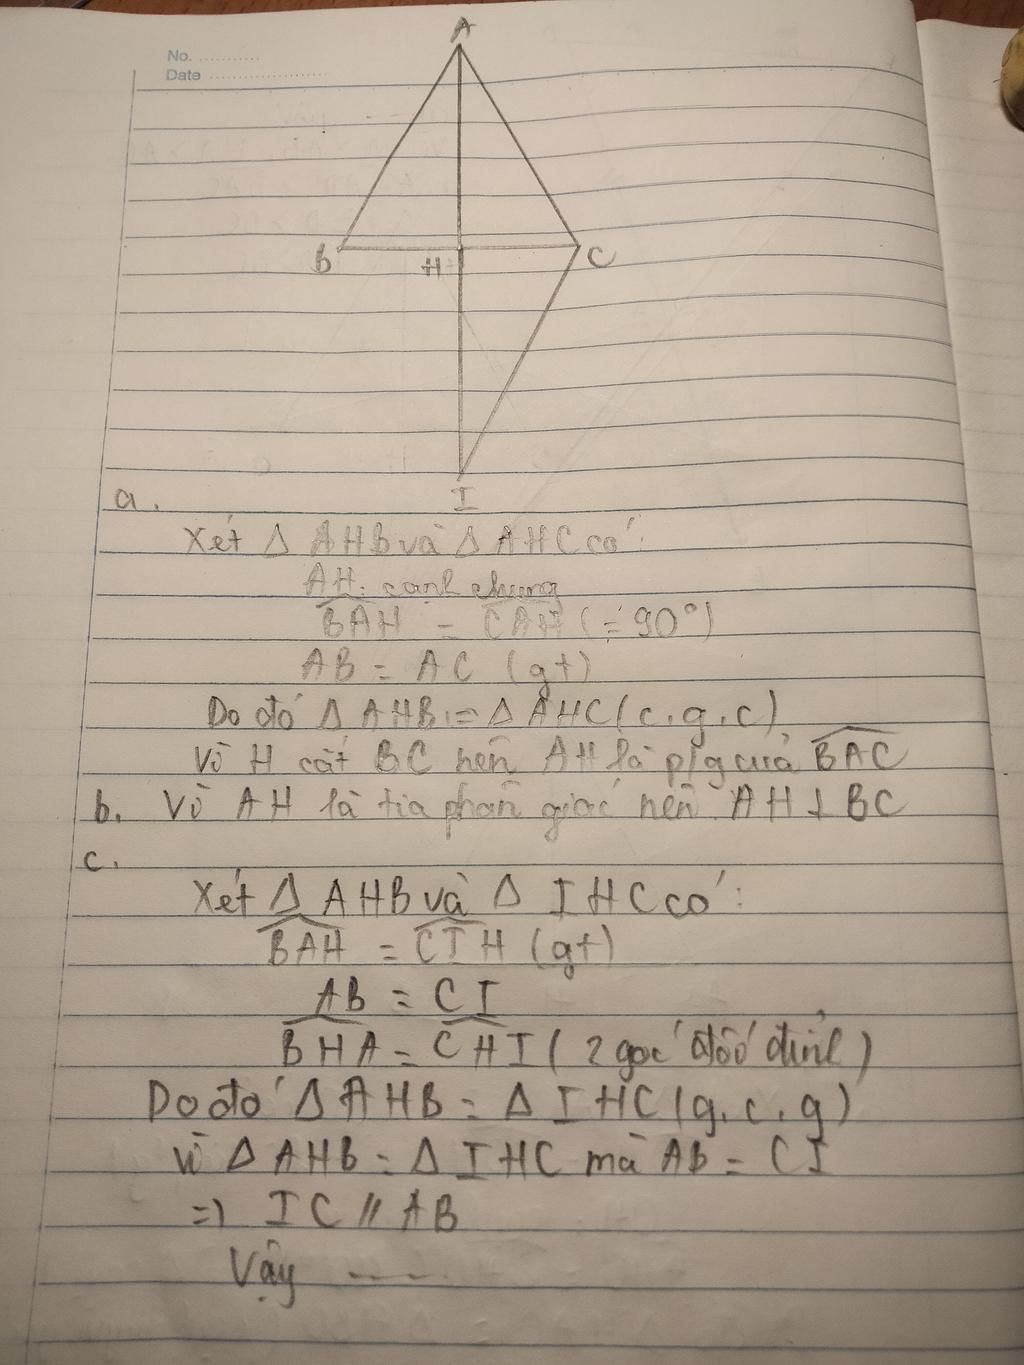 No. ............
Date ........................
A
B
H
C
I
a.
Xét Δ AHB và Δ AHC có:
AH: cạnh chung
\widehat{BAH} = \widehat{CAH} (= 90°)
AB = AC (gt)
Do đó Δ AHB = Δ AHC (c.g.c)
Vì H cắt BC nên AH là p/g của \widehat{BAC}
b. Vì AH là tia phân giác nên AH ⊥ BC
c.
Xét Δ AHB và Δ IHC có:
\widehat{BAH} = \widehat{CIH} (gt)
AB = CI
\widehat{BHA} = \widehat{CHI} (2 góc đối đỉnh)
Do đó Δ AHB = Δ IHC (g.c.g)
Vì Δ AHB = Δ IHC mà AB = CI
=> IC // AB
Vậy ---